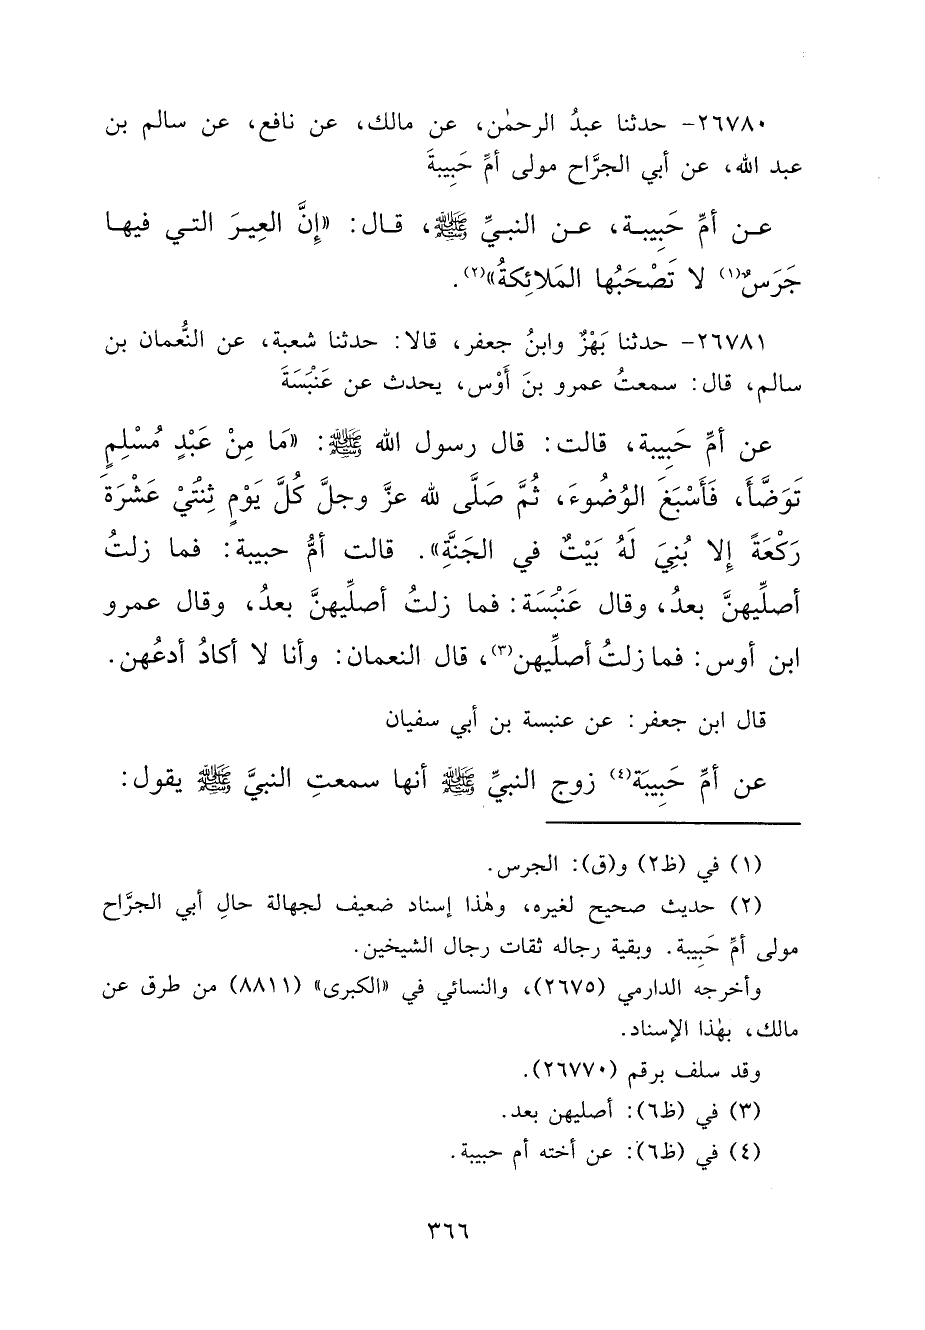 ٢٦٧٨٠- حدثنا عبدُ الرحمٰن، عن مالك، عن نافع، عن سالم بن
عبد الله، عن أبي الجرَّاح مولى أمِّ حَبِيبةَ
عن أمِّ حَبِيبة، عن النبيِّ ﷺ، قال: «إِنَّ العِيرَ التي فيها
جَرَسٌ(١) لا تَصْحَبُها المَلائِكةُ»(٢).
٢٦٧٨١- حدثنا بَهْزٌ وابنُ جعفر، قالا: حدثنا شعبة، عن النُّعمان بن
سالم، قال: سمعتُ عمرو بنَ أَوْس، يحدث عن عَنْبَسَةَ
عن أمِّ حَبِيبة، قالت: قال رسول الله ﷺ: «مَا مِنْ عَبْدٍ مُسْلِمٍ
تَوَضَّأَ، فَأَسْبَغَ الوُضُوءَ، ثُمَّ صَلَّى لله عزَّ وجلَّ كُلَّ يَوْمٍ ثِنْتَيْ عَشْرَةَ
رَكْعَةً إِلا بُنِيَ لَهُ بَيْتٌ في الجَنَّةِ». قالت أمُّ حبيبة: فما زلتُ
أصلِّيهنَّ بعدُ، وقال عَنْبَسَة: فما زلتُ أصلِّيهنَّ بعدُ، وقال عمرو
ابن أوس: فما زلتُ أصلِّيهن(٣)، قال النعمان: وأنا لا أكادُ أدعُهن.
قال ابن جعفر: عن عنبسة بن أبي سفيان
عن أمِّ حَبِيبَة(٤) زوج النبيِّ ﷺ أنها سمعتِ النبيَّ ﷺ يقول:
(١) في (ظ٢) و(ق): الجرس.
(٢) حديث صحيح لغيره، وهٰذا إسناد ضعيف لجهالة حالِ أبي الجرَّاح
مولى أمِّ حَبِيبة. وبقية رجاله ثقات رجال الشيخين.
وأخرجه الدارمي (٢٦٧٥)، والنسائي في «الكبرى» (٨٨١١) من طرق عن
مالك، بهٰذا الإسناد.
وقد سلف برقم (٢٦٧٧٠).
(٣) في (ظ٦): أصليهن بعد.
(٤) في (ظ٦): عن أخته أم حبيبة.
٣٦٦